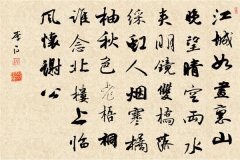 江城如畫裏山
晚望晴空兩水
夾明鏡雙橋落
綵虹人烟寒橘
柚秋色老梧桐
誰念北樓上臨
風懷謝公